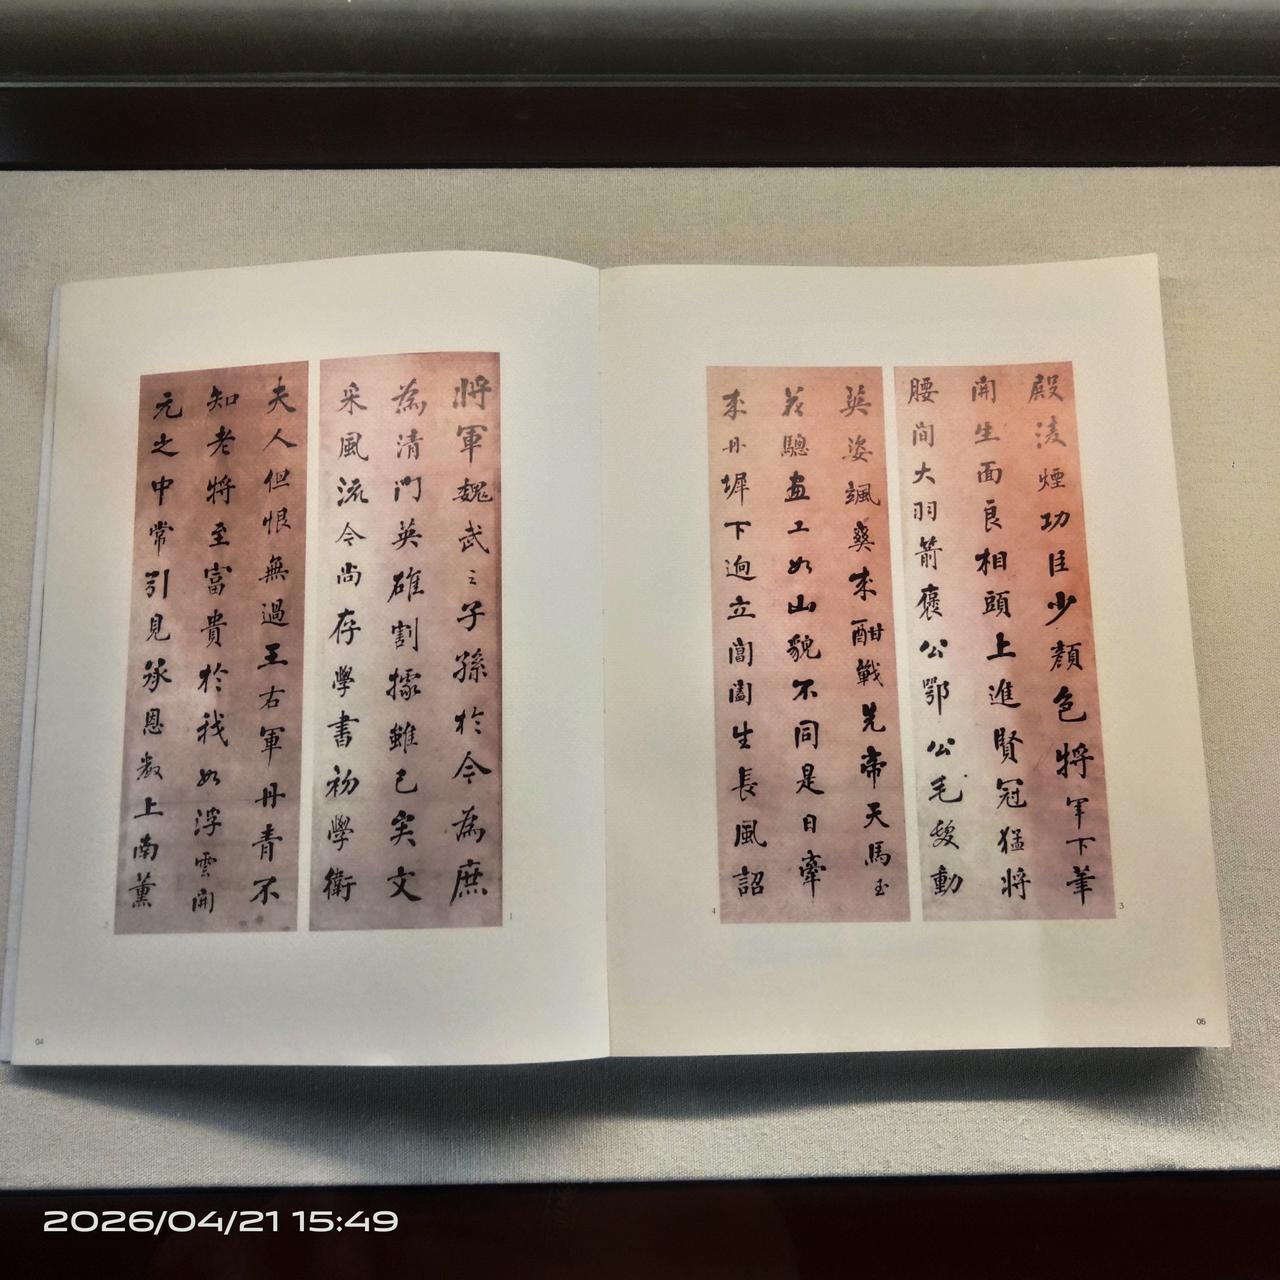 將軍魏武之子孫於今為庶
為清門英雄割據雖已矣文
采風流今尚存學書初學衛
1
夫人但恨無過王右軍丹青不
知老將至富貴於我如浮雲開
元之中常引見承恩數上南薰
2
04
殿淩煙功臣少顏色將軍下筆
開生面良相頭上進賢冠猛將
腰間大羽箭褒公鄂公毛髮動
3
英姿颯爽來酣戰先帝天馬玉
花驄畫工如山貌不同是日牽
來丹墀下迥立閶闔生長風詔
4
05
2026/04/21 15:49